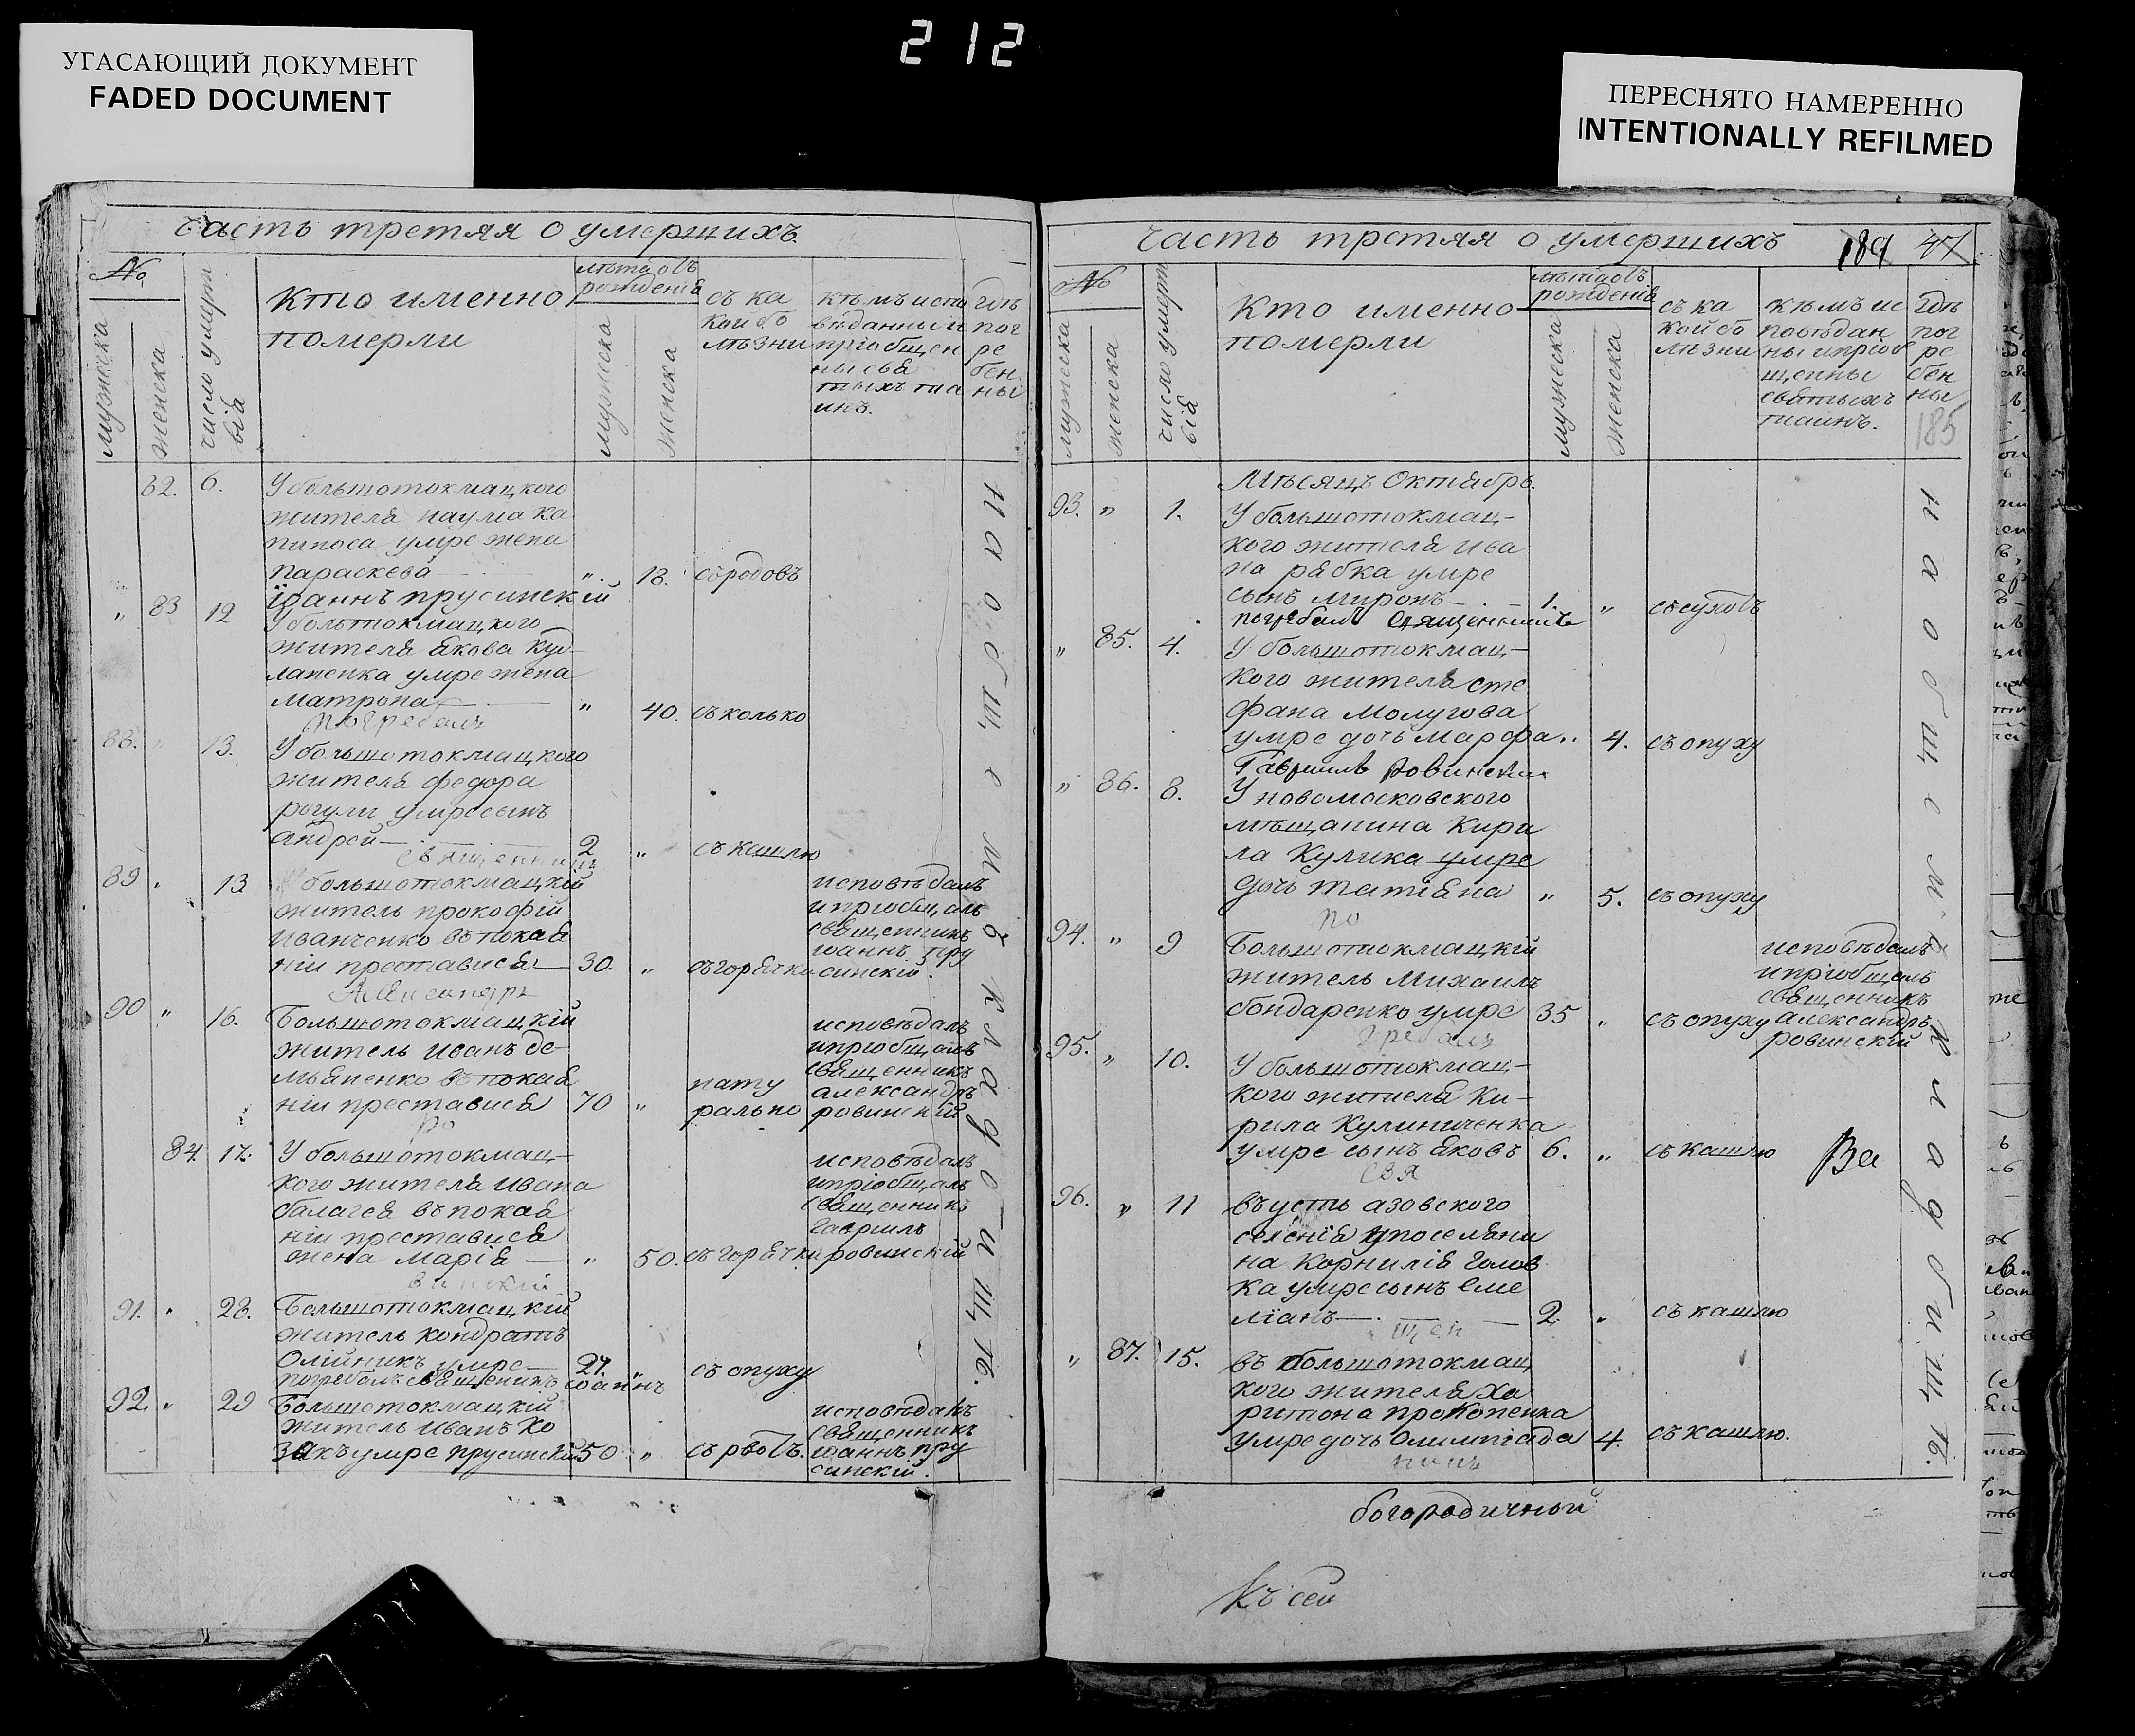 212
УГАСАЮЩИЙ ДОКУМЕНТ
FADED DOCUMENT
ПЕРЕСНЯТО НАМЕРЕННО
INTENTIONALLY REFILMED
часть третяя о умершихъ.
№
мужеска
женска
число умертвія
кто именно
померли
лѣта отъ
рожденія
мужеска
женска
съ ка
кой бо
лѣзни
кѣмъ испо
вѣданны и
пріобщен
ны свя
тыхъ таинъ.
гдѣ
пог
ре
бен
ны
82. 6. У большотокмацкого
жителя наума ка
пиноса умре жена
параскева „ 18. съ родовъ
Іоаннъ прусинскій
„ 83 12 У больтокмацкого
жителя якова куд
лапенка умре жена
матрона „ 40. съ колько
погребалъ
88. „ 13. У большотокмацкого
жителя федора
рогули умре сынъ
андрей 2 „ съ кашлю
священникъ
89 „ 13 большотокмацкій
житель прокофій
иванченко въ покая
ніи преставися 30. „ съ горячки
исповѣдалъ
и пріобщалъ
священникъ
іоаннъ пру
синскій.
Александръ
90 „ 16. Большотокмацкій
житель иванъ де-
мьяненко въ покая
ніи преставися 70 „ нату
рально
исповѣдалъ
и пріобщалъ
священникъ
александръ
ровинскій
ро
84. 17. У большотокмац-
кого жителя ивана
балагея въ покая
ніи преставися
жена марія „ 50. съ горячки
исповѣдалъ
и пріобщалъ
священникъ
гавриилъ
ровинскій
винскій
91. „ 28. Большотокмацкій
житель кондратъ
Олійникъ умре 27. „ съ опуху
погребалъ священникъ іоаннъ
92. „ 29 Большотокмацкій
житель иванъ ко
закъ умре прусинскій 50 „ съ рвотъ.
исповѣдалъ
священникъ
іоаннъ пру
синскій.
на общемъ кладбищѣ.
часть третяя о умершихъ
189 47
№
мужеска
женска
число умертвія
Кто именно
померли
лѣта отъ
рожденія
мужеска
женска
съ ка
кой бо
лѣзни
кѣмъ ис
повѣдан
ны и пріоб
щенны
святыхъ
таинъ.
гдѣ
пог
ре
бен
ны
185
Мѣсяцъ Октябрь.
93. „ 1. У большотокмац-
кого жителя ива
на рябка умре
сынъ миронъ 1. „ съ сухотъ
погребалъ Священникъ
„ 85. 4. У большотокмац-
кого жителя сте
фана молугова
умре дочь марфа „ 4. съ опуху
Гавриилъ Ровинскій
„ 86. 8. У новомосковского
мѣщанина кири
ла Кулика умре
дочь татіана „ 5. съ опуху
по
94. „ 9 Большотокмацкій
житель Михаилъ
бондаренко умре 35 „ съ опуху
исповѣдалъ
и пріобщалъ
священникъ
александръ
ровинскій
гребалъ
95. „ 10. У большотокмац-
кого жителя ки-
рила кулиниченка
умре сынъ яковъ 6. „ съ кашлю
Ве
свя
96. „ 11 въ усть азовского
селенія у поселяни
на Корнилія голов
ка умре сынъ еме
ліанъ 2. „ съ кашлю
щен
„ 87. 15. въ большотокмац
кого жителя ха
ритона прокопенка
умре дочь олимпіада 4. съ кашлю.
никъ
на общемъ кладбищѣ.
богородичной
Къ сей